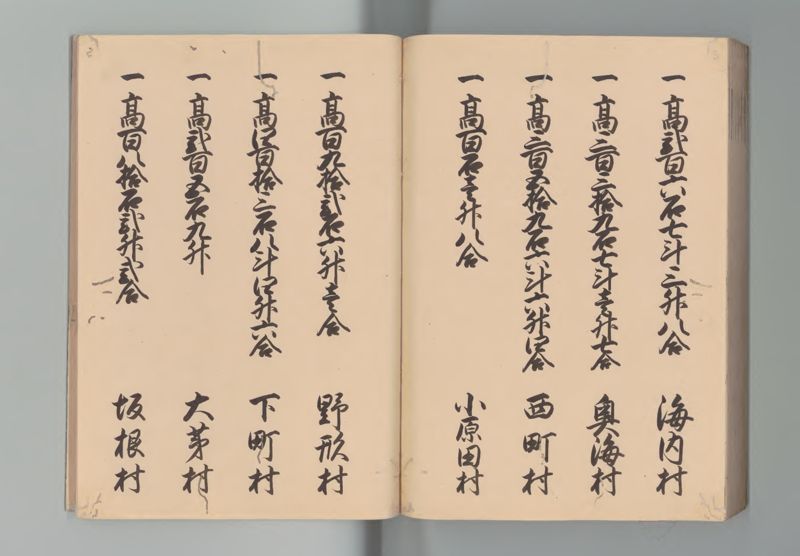 一 高弐百六石七斗三升八合 海内村
一 高三百三拾九石七斗壱升七合 奥海村
一 高三百五拾九石六斗六升四合 西町村
一 高百石壱斗八合 小原田村
一 高百九拾弐石六升壱合 野形村
一 高四百拾三石八斗四升六合 下町村
一 高弐百五石九升 大茅村
一 高百八拾石弐升弐合 坂根村